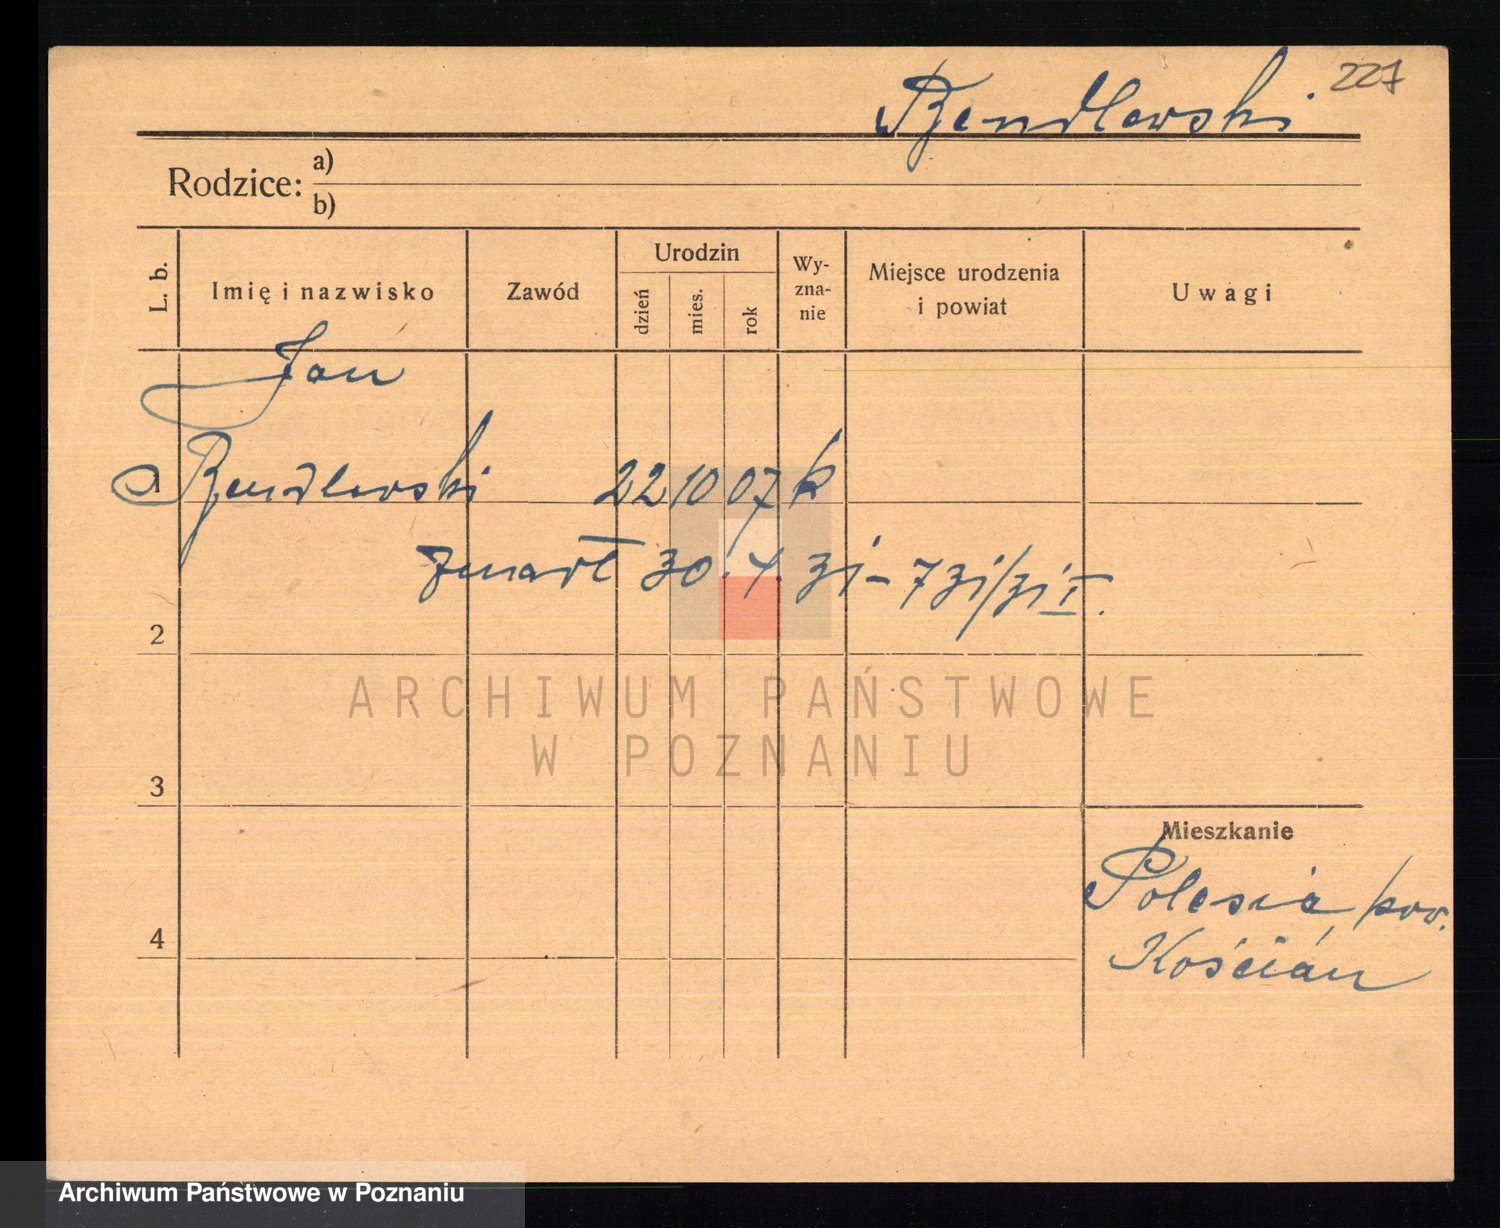 227
Bendlewski
Rodzice: a)
b)
L. b.
Imię i nazwisko
Zawód
Urodzin
dzień
mies.
rok
Wy-
zna-
nie
Miejsce urodzenia
i powiat
Uwagi
Jan
1 Bendlewski 22 10 07 k
zmarł 30.4 31 - 731/31 I.
2
3
4
Mieszkanie
Polesie, pow.
Kościan
ARCHIWUM PAŃSTWOWE
W POZNANIU
Archiwum Państwowe w Poznaniu